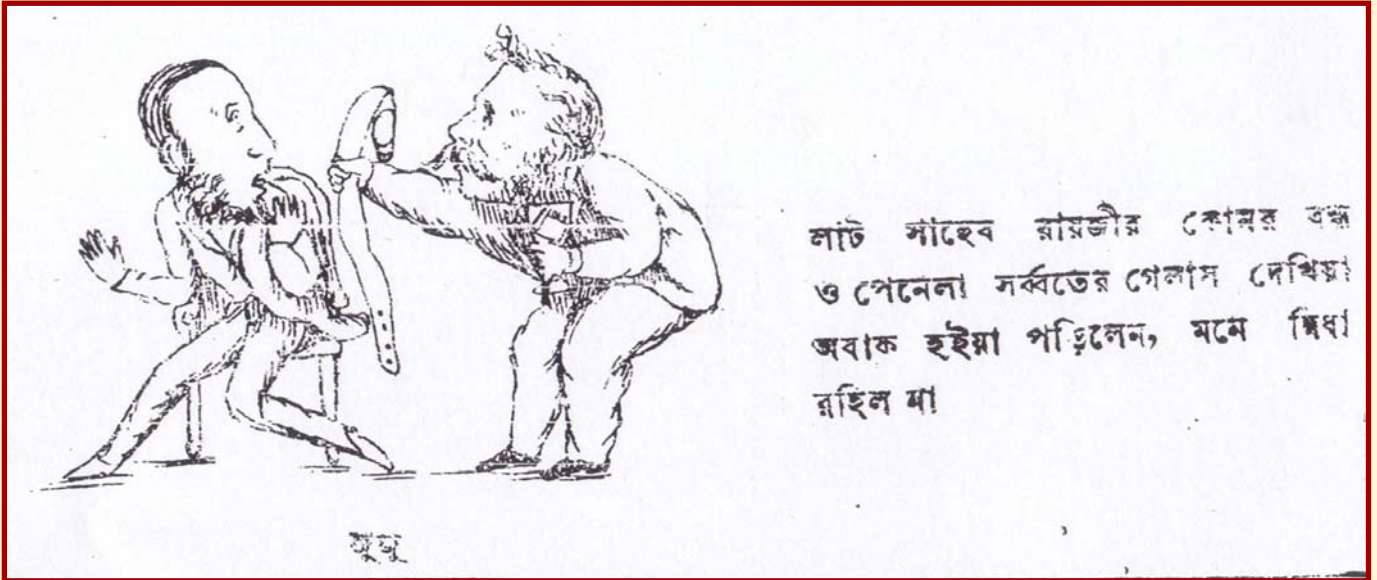 লাট সাহেব রায়জীর কোমর বন্ধ
ও পেনেলা সর্ব্বতের গেলাস দেখিয়া
অবাক হইয়া পড়িলেন, মনে দ্বিধা
রহিল না